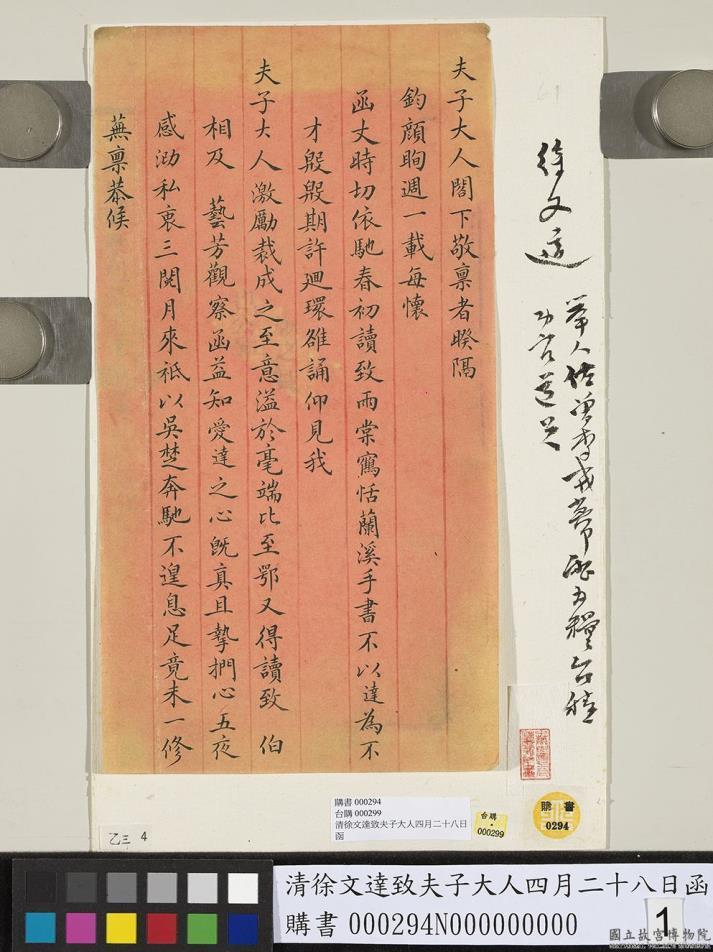 徐文達
夫子大人閣下敬稟者暌隔
鈞顏眴週一載每懷
函丈時切依馳春初讀致雨棠寫恬蘭溪手書不以達為不
才殷殷期許廻環雒誦仰見我
夫子大人激勵裁成之至意溢於毫端比至鄂又得讀致 伯
相及 藝芳觀察函益知愛達之心既真且摯捫心五夜
感泐私衷三閱月來祗以吳楚奔馳不遑息足竟未一修
蕪稟恭候
購書 000294
台購 000299
清徐文達致夫子大人四月二十八日
函
台購
000299
購書
0294
乙三 4
清徐文達致夫子大人四月二十八日函
購書 000294N000000000
1
國立故宮博物院